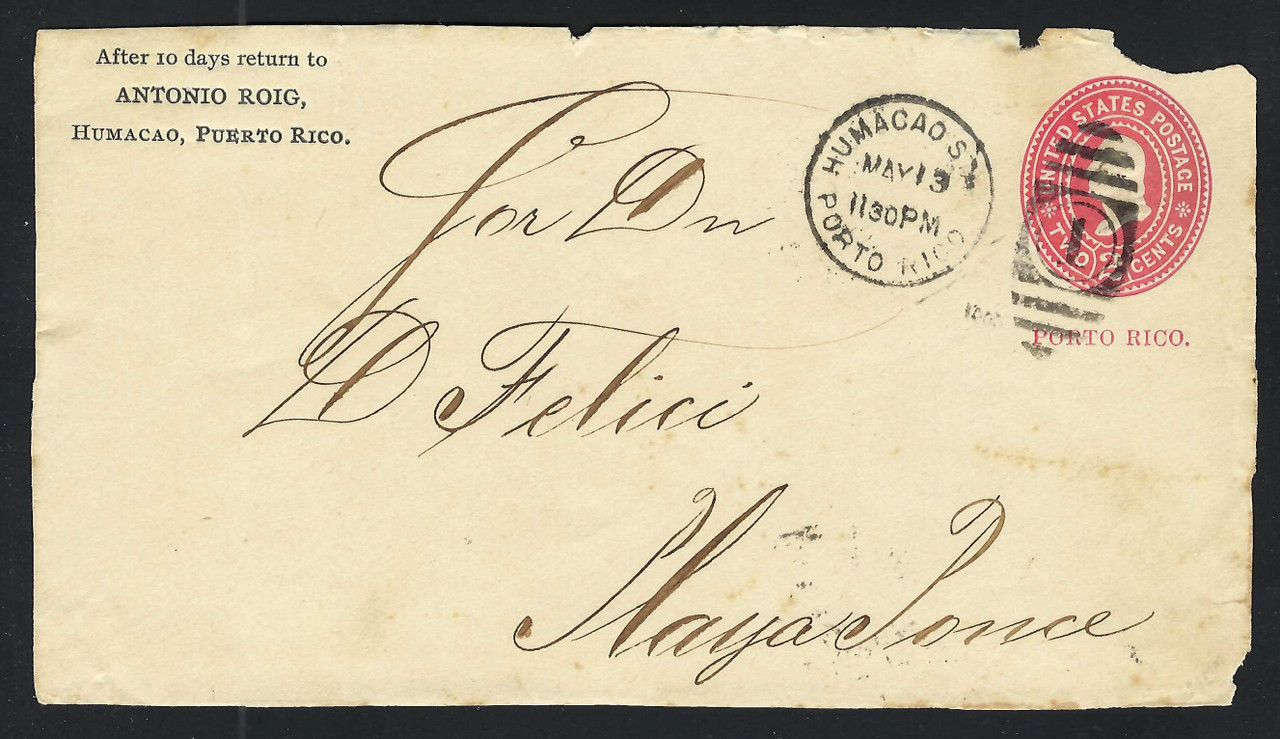 After 10 days return to
ANTONIO ROIG,
HUMACAO, PUERTO RICO.
HUMACAO STA
MAY 13
1130PM
PORTO RICO
UNITED STATES POSTAGE
TWO 2 CENTS
1
PORTO RICO.
Sor Dn
D Felici
Playa Ponce